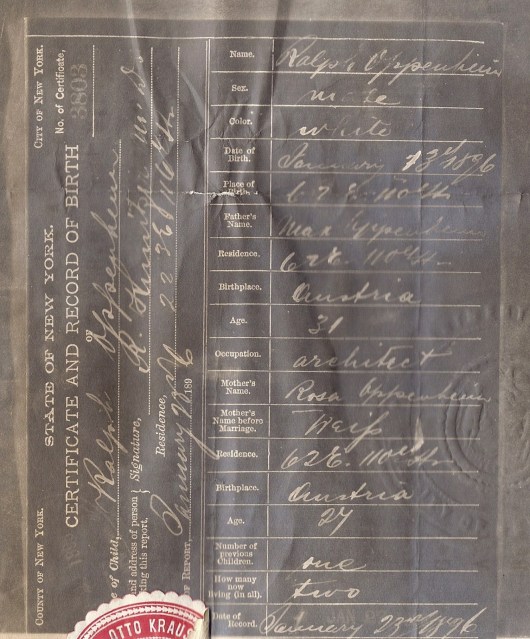 STATE OF NEW YORK.
COUNTY OF NEW YORK. CITY OF NEW YORK.
CERTIFICATE AND RECORD OF BIRTH
No. of Certificate,
3803
OF
e of Child, Ralph Oppenheim
nd address of person
ing this report,
Signature,
Residence, 22 E 116 St.
F REPORT, January 189
Name. Ralph Oppenheim
Sex. male
Color. white
Date of Birth. January 13 1896
Place of Birth. 62 E. 110th St
Father's Name. Max Oppenheim
Residence. 62 E. 110th St
Birthplace. Austria
Age. 31
Occupation. architect
Mother's Name. Rosa Oppenheim
Mother's Name before Marriage. Weiss
Residence. 62 E. 110th St
Birthplace. Austria
Age. 27
Number of previous Children. one
How many now living (in all). two
Date of Record. January 23rd 1896
OTTO KRAUS